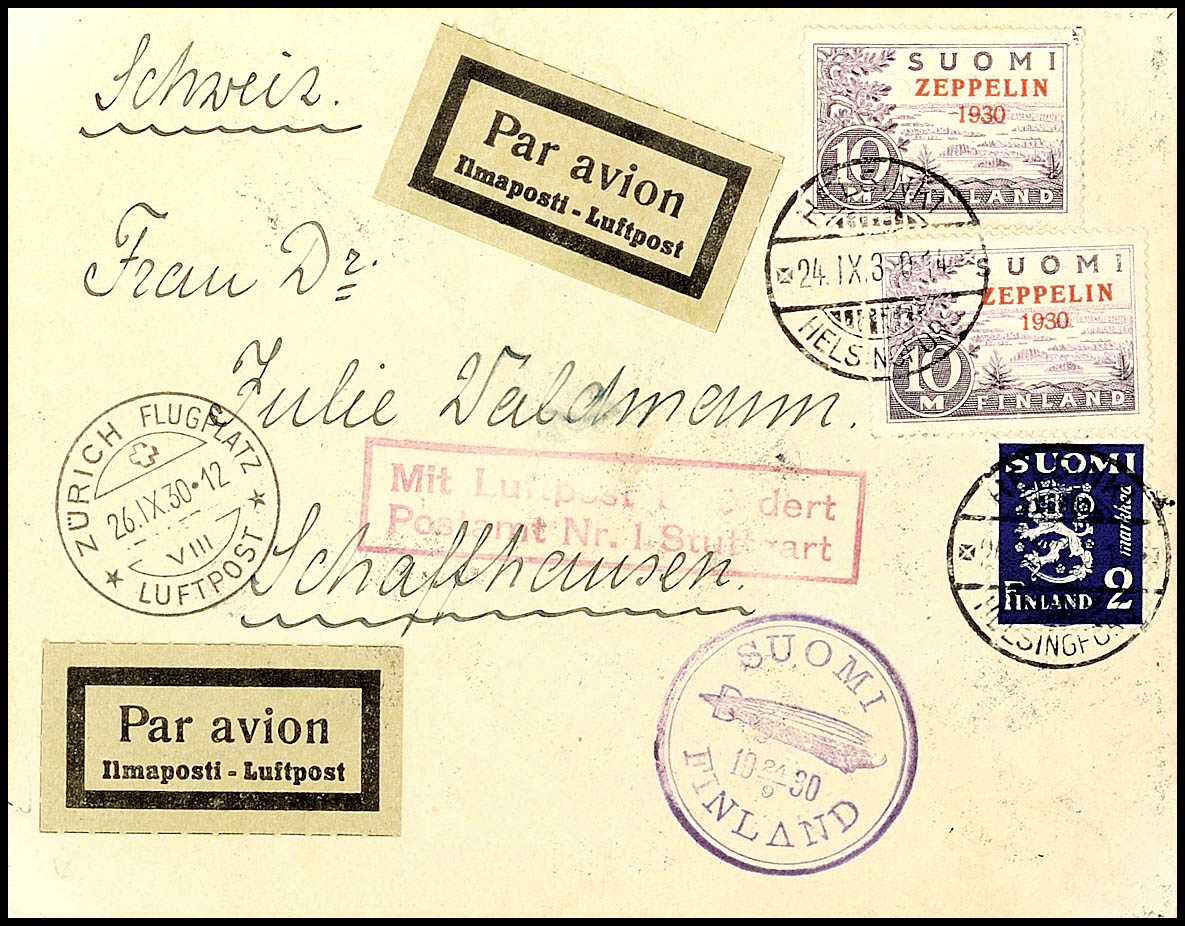 Schweiz.
Par avion
Ilmaposti - Luftpost
SUOMI
ZEPPELIN
1930
10
M
FINLAND
24.IX.3 0.14
HELSINGFORS
SUOMI
ZEPPELIN
1930
10
M
FINLAND
Frau Dr.
Julie Waldmann.
ZÜRICH FLUGPLATZ
26.IX.30•12
VIII
LUFTPOST
Mit Luftpost dert
Postamt Nr. 1 Stuttgart
Schaffhausen.
SUOMI
markkaa
FINLAND 2
HELSINGFORS
Par avion
Ilmaposti - Luftpost
SUOMI
19 24/9 30
FINLAND